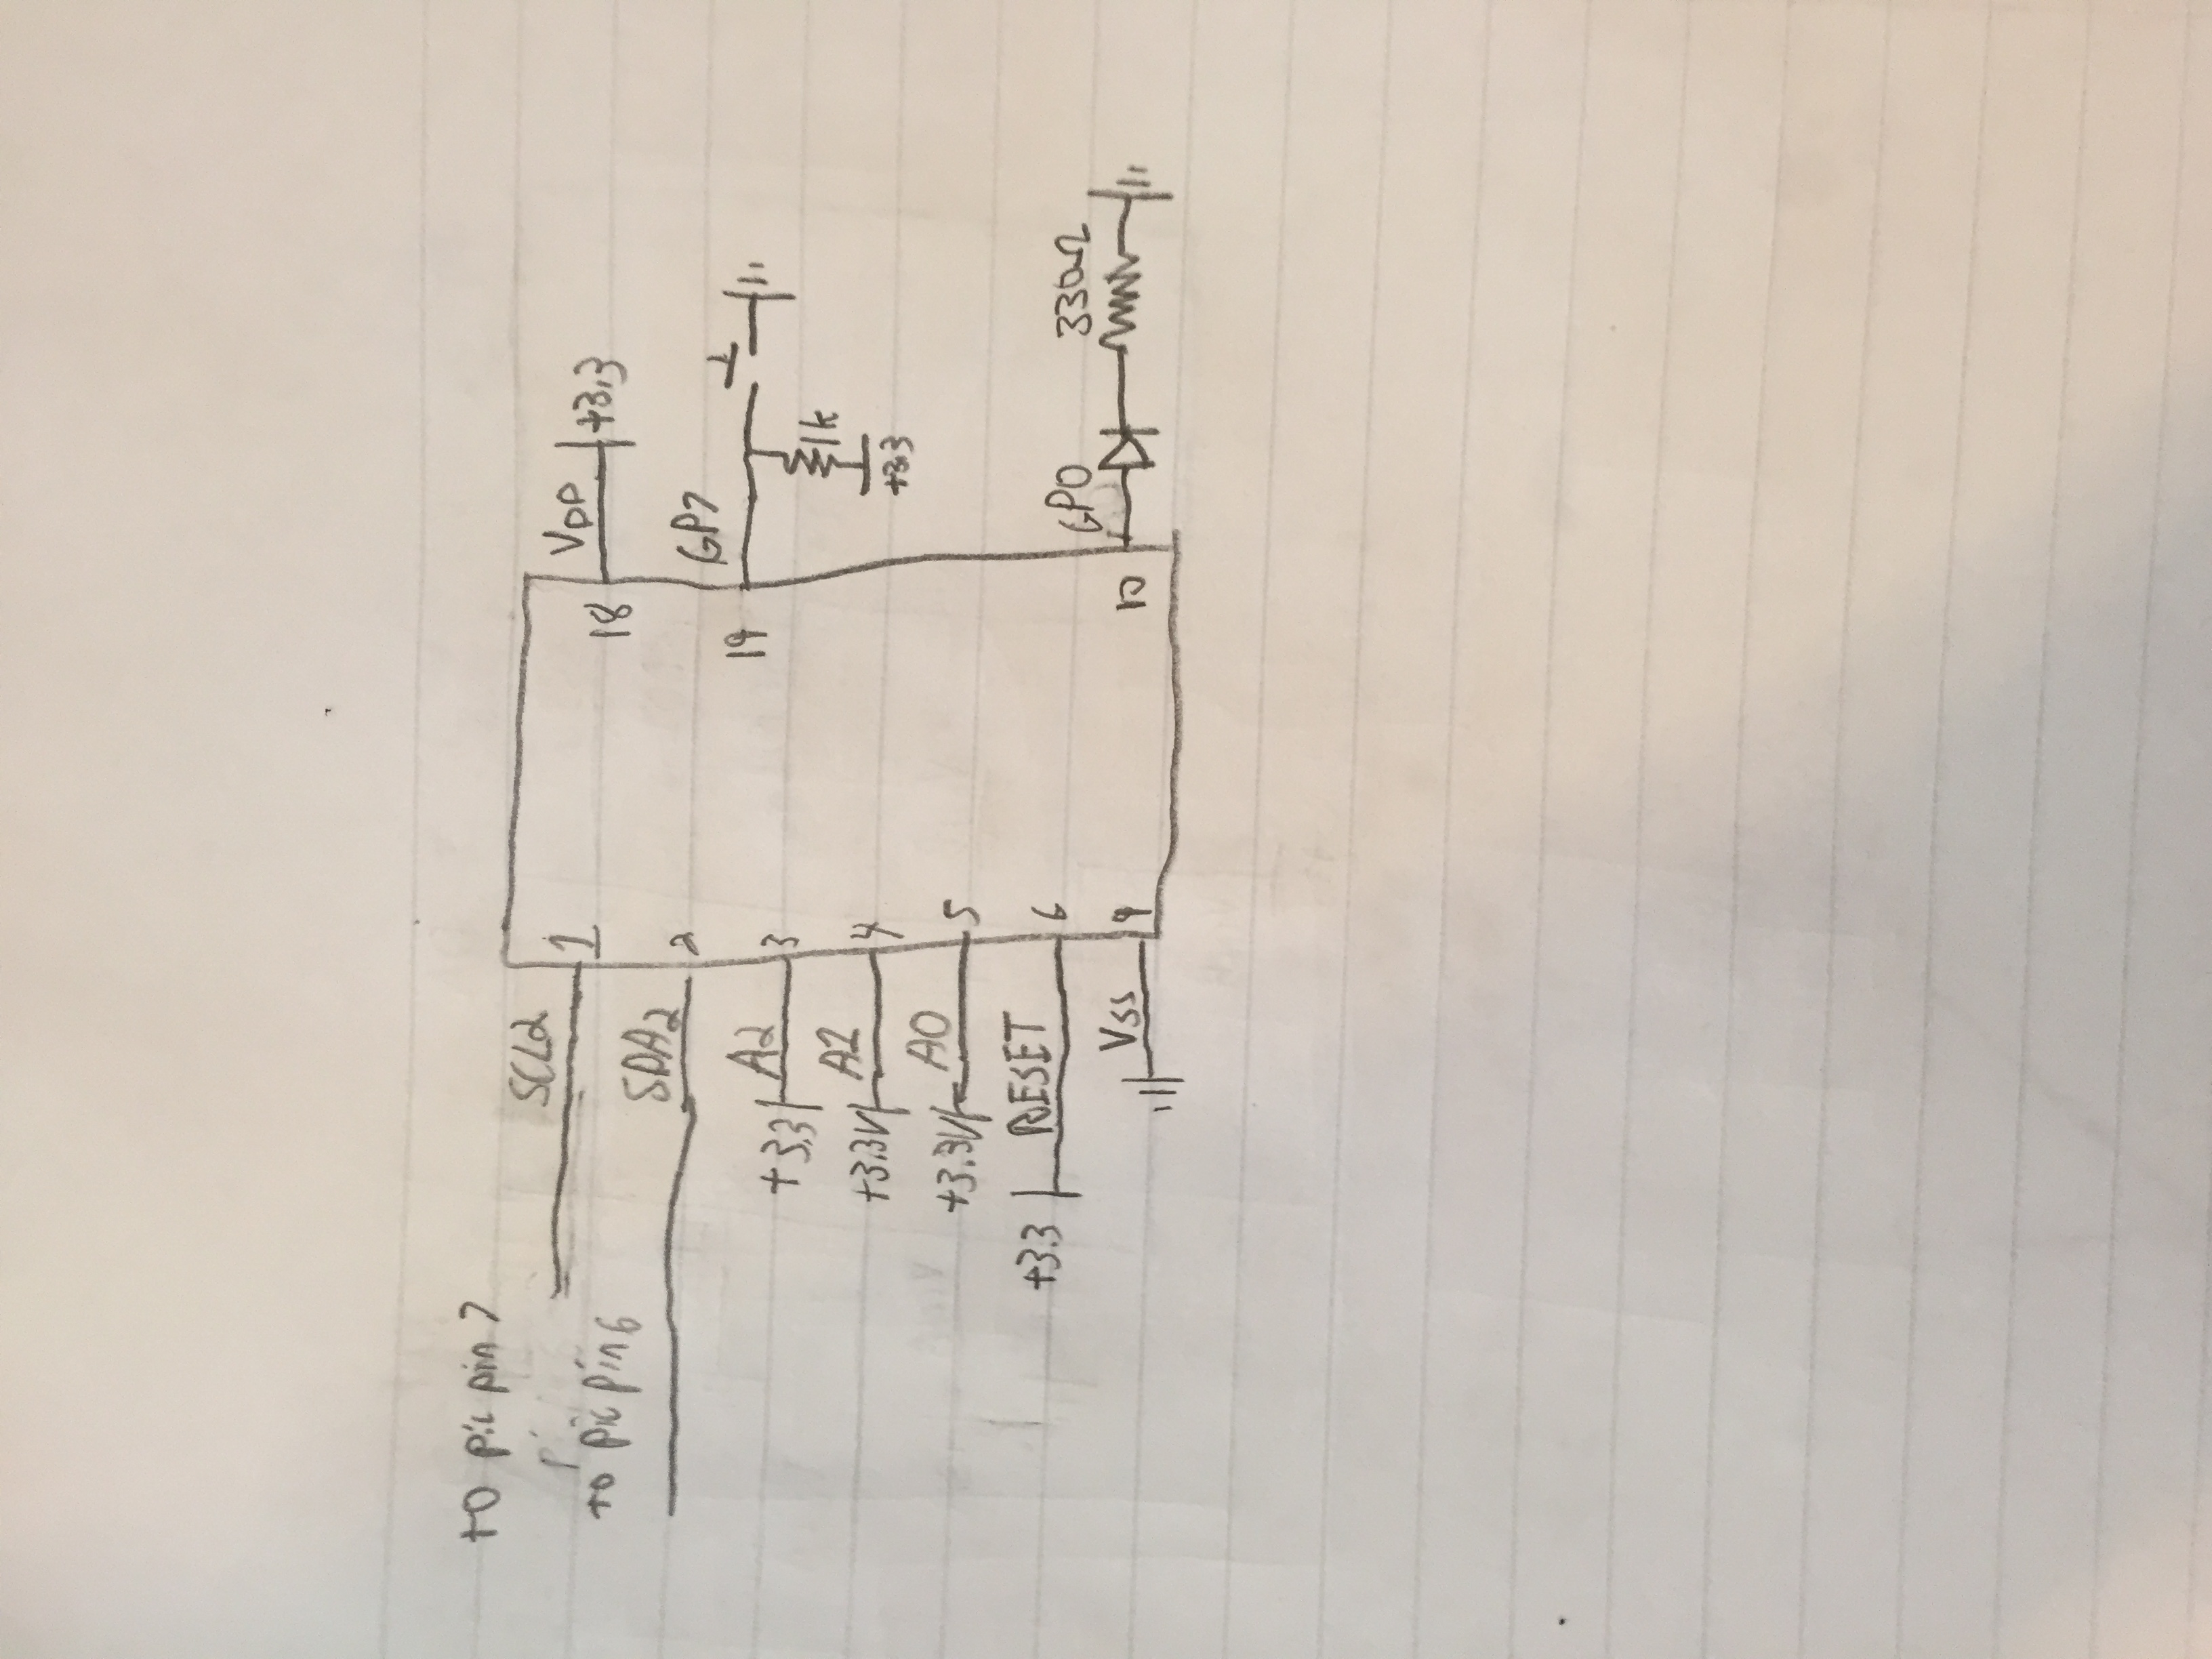 to pic pin 7
SCL2
1
to pic pin 6
SDA2
2
+3.3 A2
3
+3.3V A1
4
+3.3V A0
5
+3.3 RESET
6
Vss
9
18
VDD
+3.3
19
GP7
1k
+3.3
10
GP0
330Ω